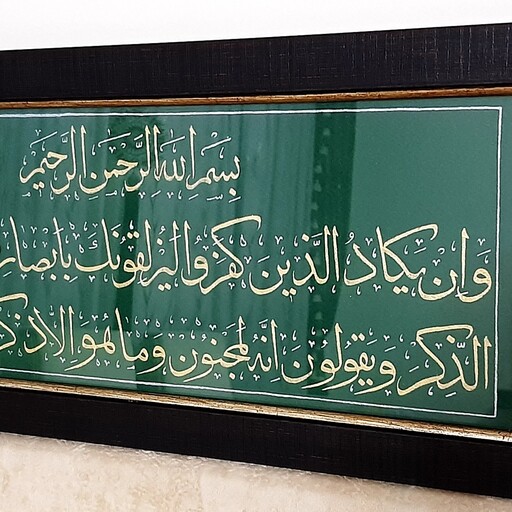 بِسْمِ اللَّهِ الرَّحْمَنِ الرَّحِيمِ
وَاِنْ يَكَادُ الَّذينَ كَفَرُوا لَيُزْلِقُونَكَ بِاَبْصَارِ
الذِّكْرَ وَيَقُولُونَ اِنَّهُ لَمَجْنُونٌ وَمَا هُوَ اِلَّا ذِكْ